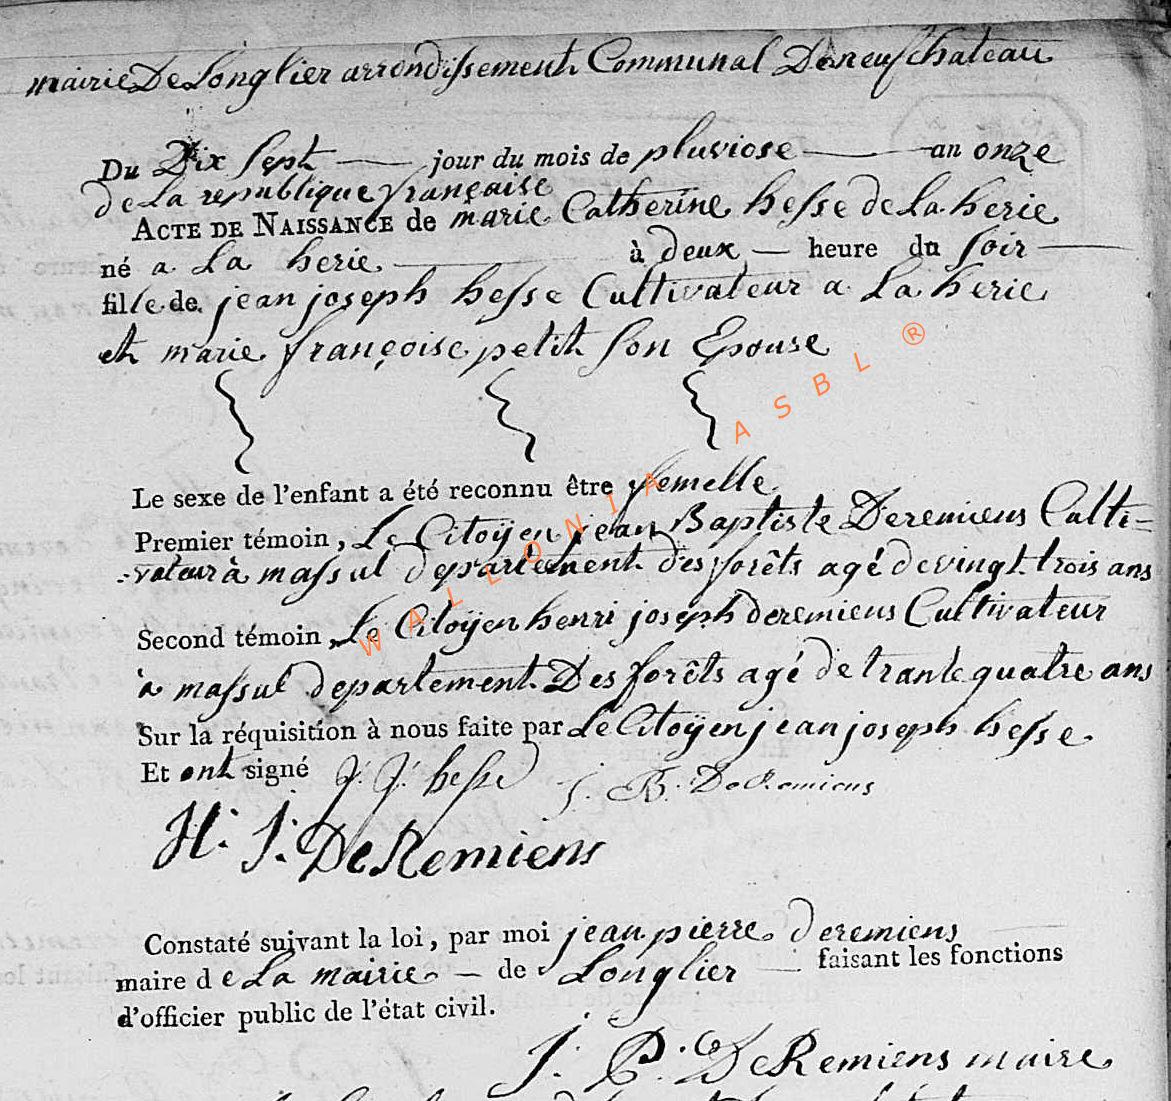 mairie De Longlier arrondissement Communal De neufchateau
Du Dix Sept jour du mois de pluviose an onze
de La republique française
ACTE DE NAISSANCE de marie Catherine hesse de La herie
né a La herie à deux heure du soir
fille de jean joseph hesse Cultivateur a La herie
et marie françoise petit son Epouse
Le sexe de l'enfant a été reconnu être femelle
Premier témoin, Le Citoÿen jean Baptiste Deremiens Culti=
=vateur à massul departement des forêts agé de vingt trois ans
Second témoin, Le Citoÿen henri joseph deremiens Cultivateur
à massul departement Des forêts agé de trante quatre ans
Sur la réquisition à nous faite par Le Citoÿen jean joseph hesse
Et ont signé J. J. hesse J. B. DeRemiens
H. J. DeRemiens
Constaté suivant la loi, par moi jean pierre deremiens
maire de La mairie de Longlier faisant les fonctions
d'officier public de l'état civil.
J. P. DeRemiens maire
WALLONIA ASBL ®